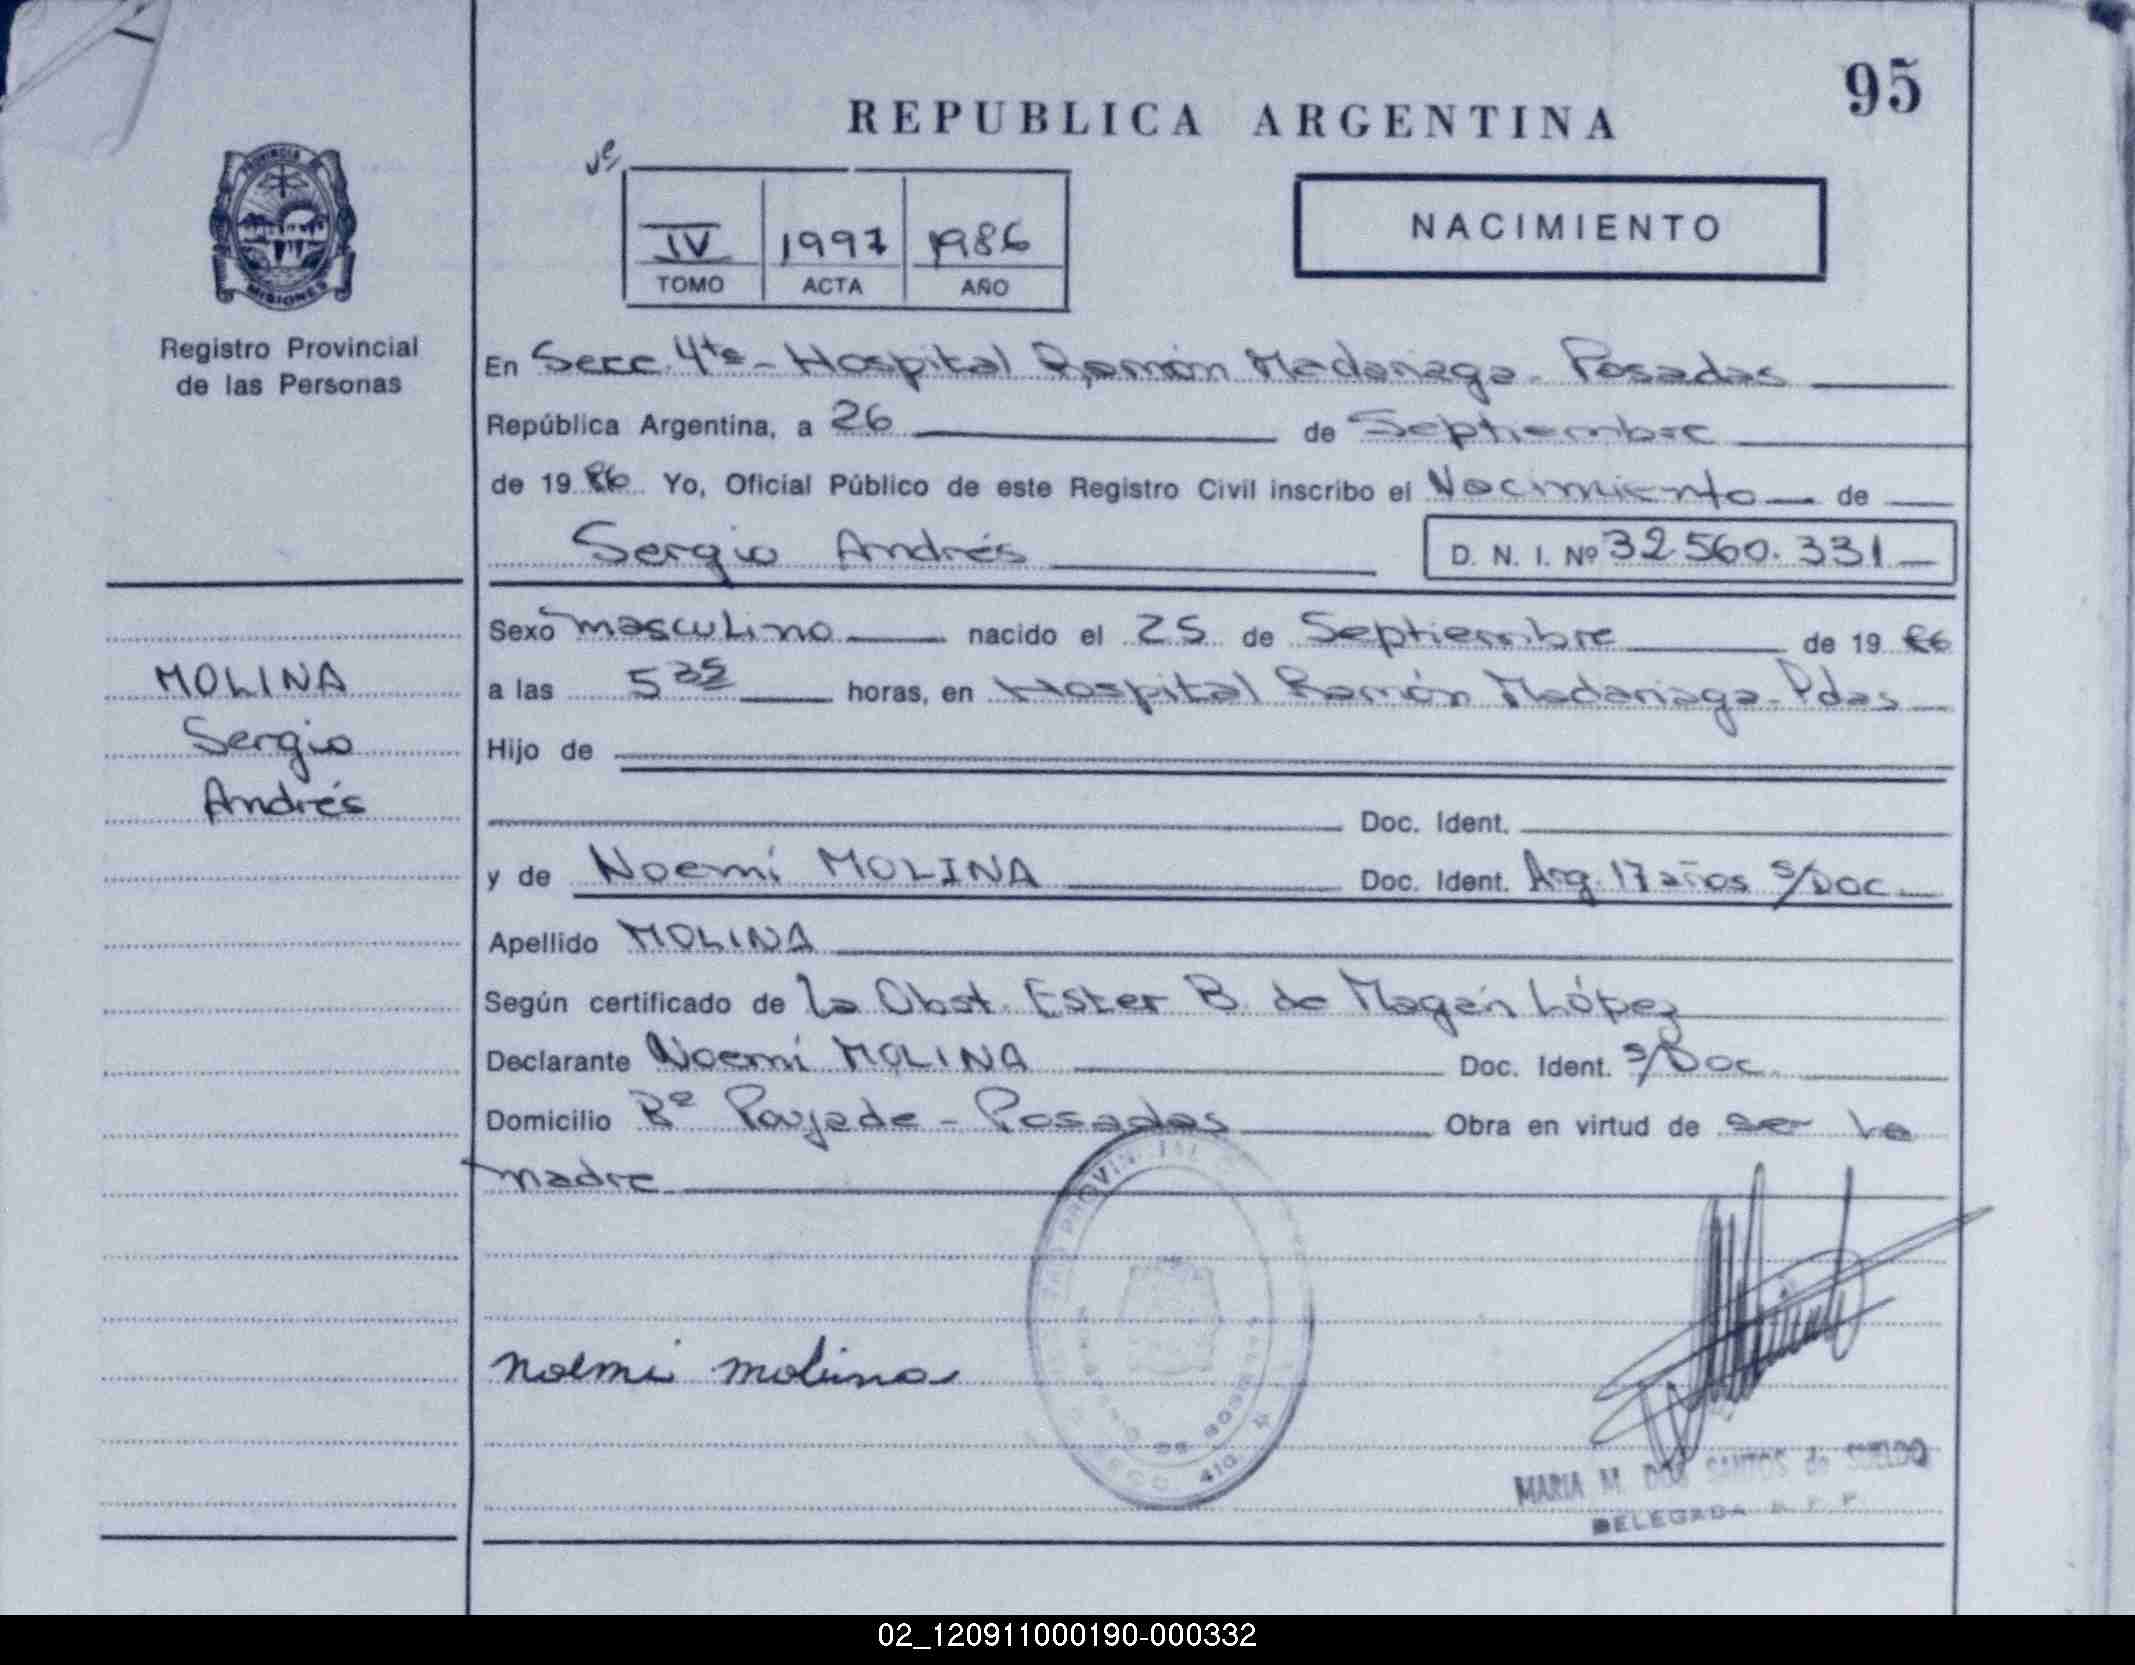 95
REPUBLICA ARGENTINA
PROVINCIA
MISIONES
Registro Provincial
de las Personas
IV 1997 1986
TOMO ACTA AÑO
NACIMIENTO
En Secc. 4ta - Hospital Ramón Madariaga - Posadas
República Argentina, a 26 de Septiembre
de 19 86 Yo, Oficial Público de este Registro Civil inscribo el Nacimiento de
Sergio Andrés D. N. I. Nº 32.560.331
MOLINA
Sergio
Andrés
Sexo masculino nacido el 25 de Septiembre de 19 86
a las 5 35 horas, en Hospital Ramón Madariaga - Pdas
Hijo de
Doc. Ident.
y de Noemí MOLINA Doc. Ident. Arg. 17 años s/Doc
Apellido MOLINA
Según certificado de la Obst. Ester B. de Magán López
Declarante Noemí MOLINA Doc. Ident. s/Doc.
Domicilio Bº Poujade - Posadas Obra en virtud de ser la
madre
PROVINCIAL
Noemi molina
MARIA M. DOS SANTOS de SUELDO
DELEGADA R. P. P.
02_120911000190-000332